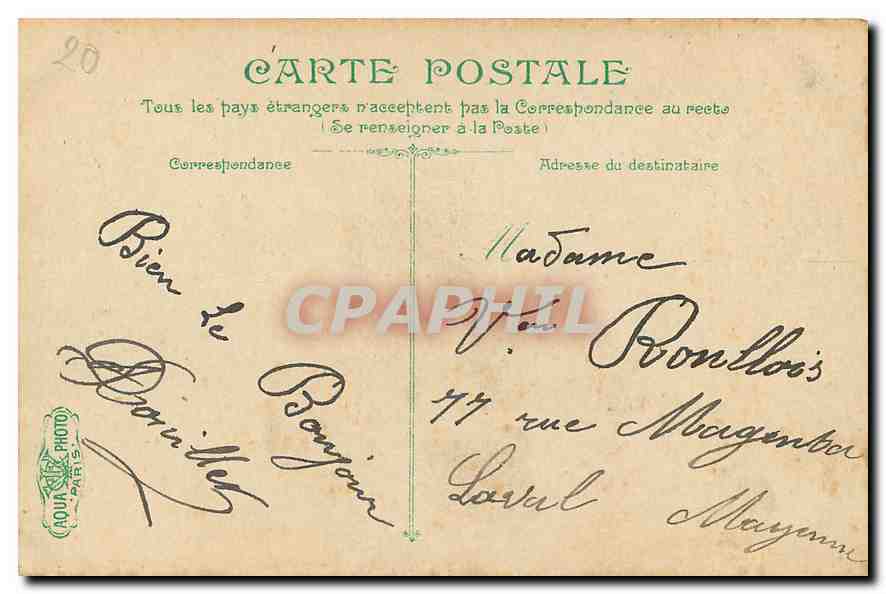 20
CARTE POSTALE
Tous les pays étrangers n'acceptent pas la Correspondance au recto
(Se renseigner à la Poste)
Correspondance
Adresse du destinataire
Bien le
Bonjour
Madame
Vve Roullois
77 rue Magenta
Laval
Mayenne
AQUA PHOTO
PARIS.
CPAPHIL